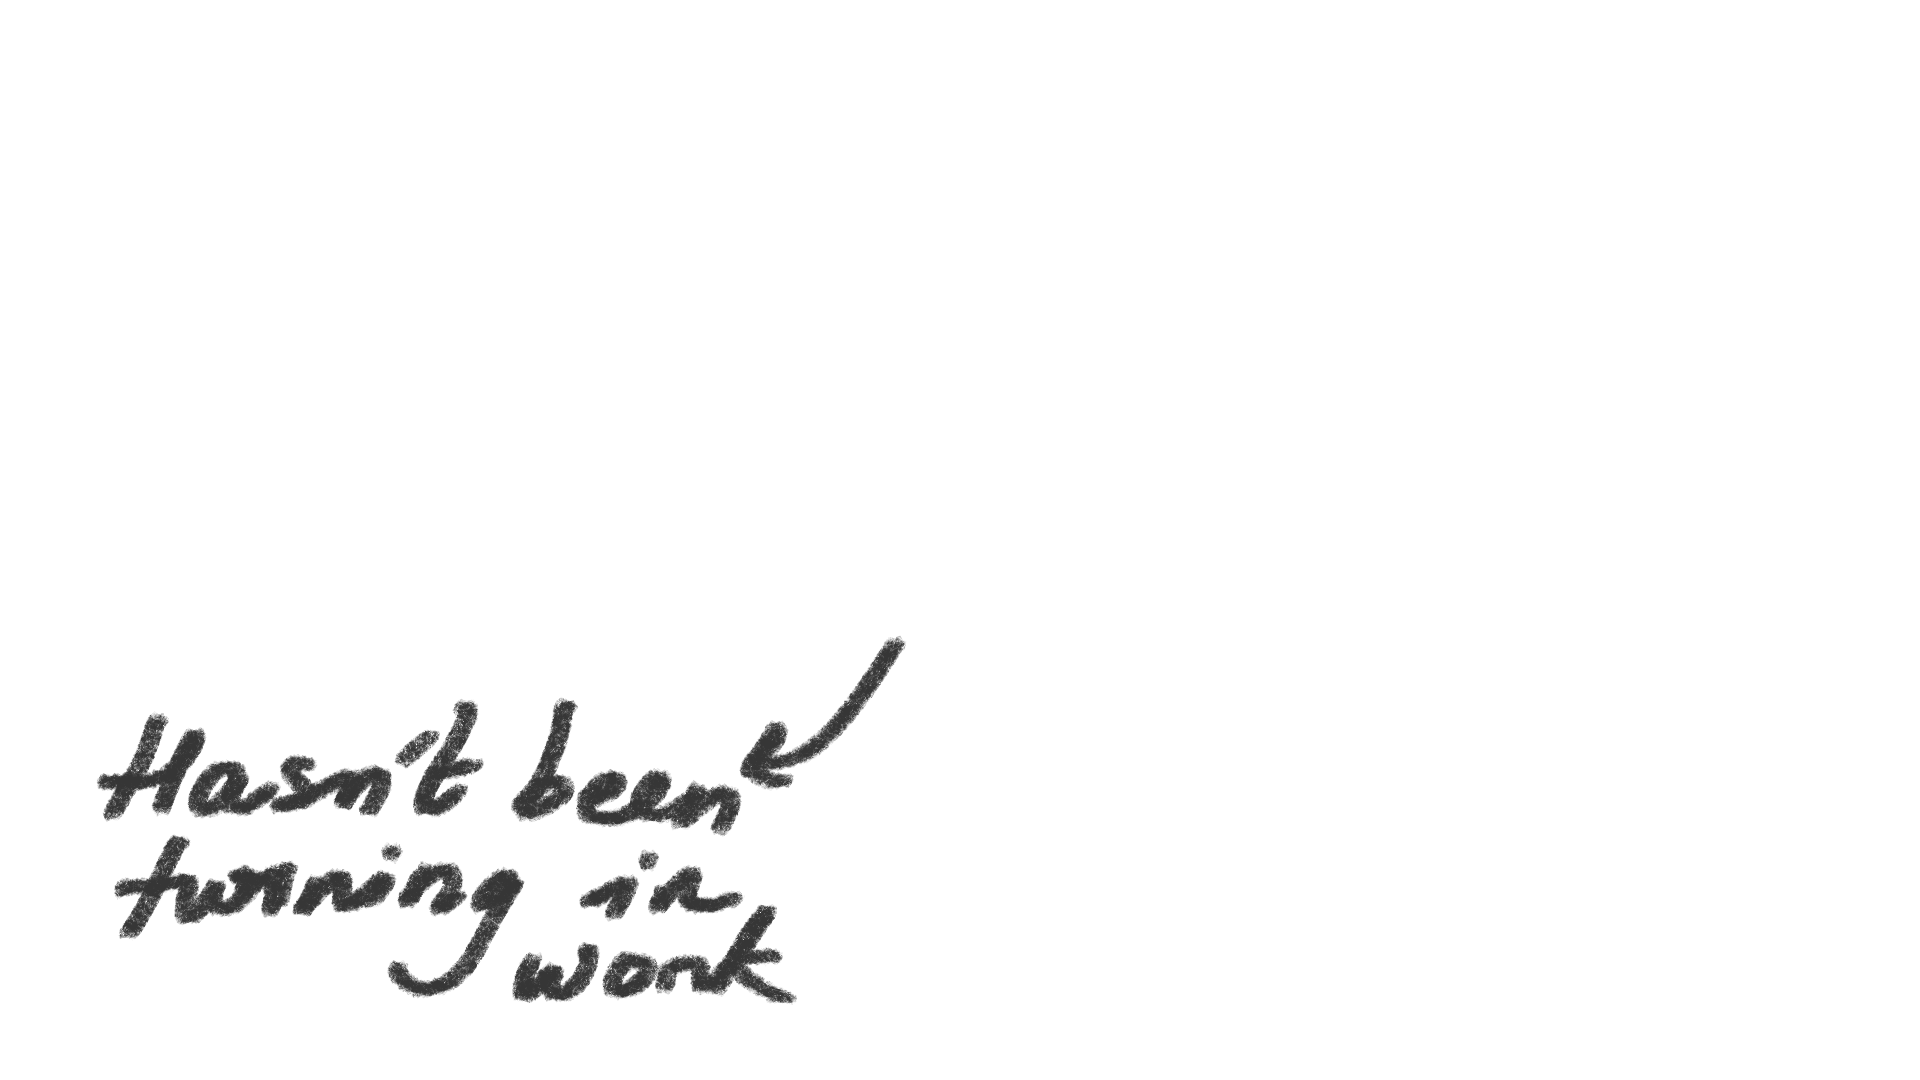 Hasn't been
turning in
work